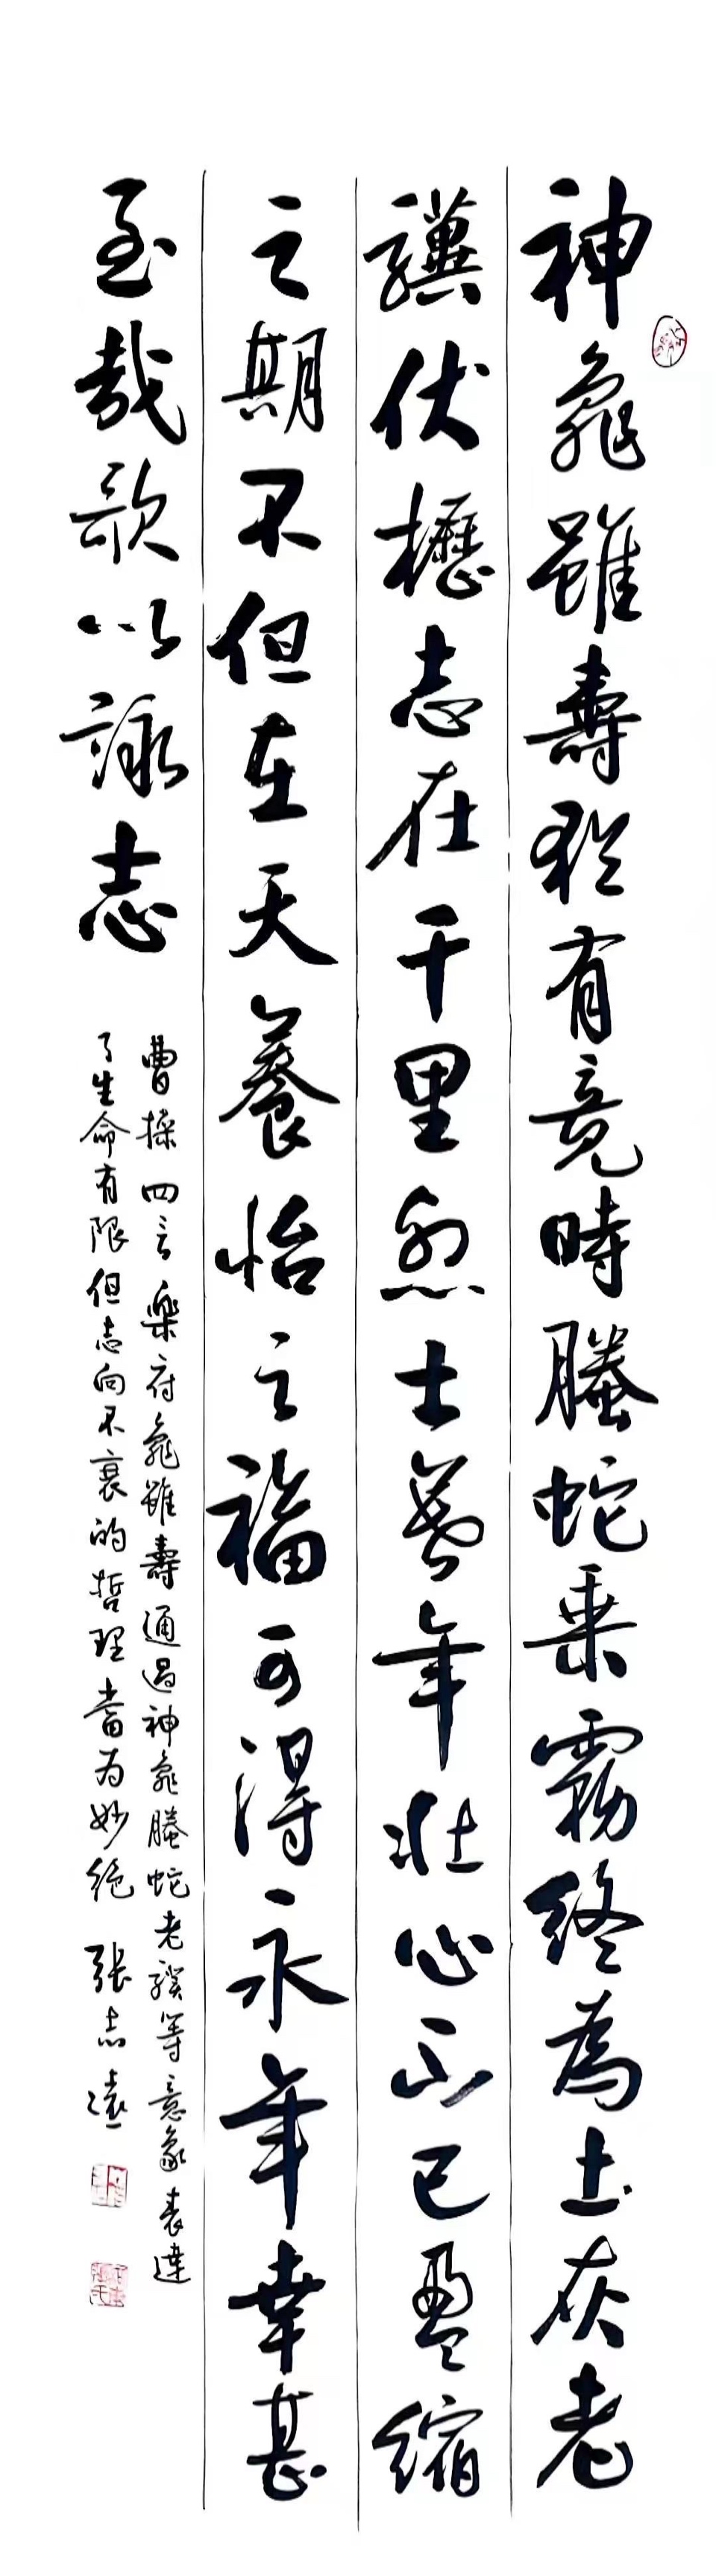 神龜雖壽猶有竟時螣蛇乘霧終為土灰老
驥伏櫪志在千里烈士暮年壯心不已盈縮
之期不但在天養怡之福可得永年幸甚
至哉歌以詠志
曹操四言樂府龜雖壽通過神龜螣蛇老驥等意象表達
了生命有限但志向不衰的哲理當为妙絕 張志遠